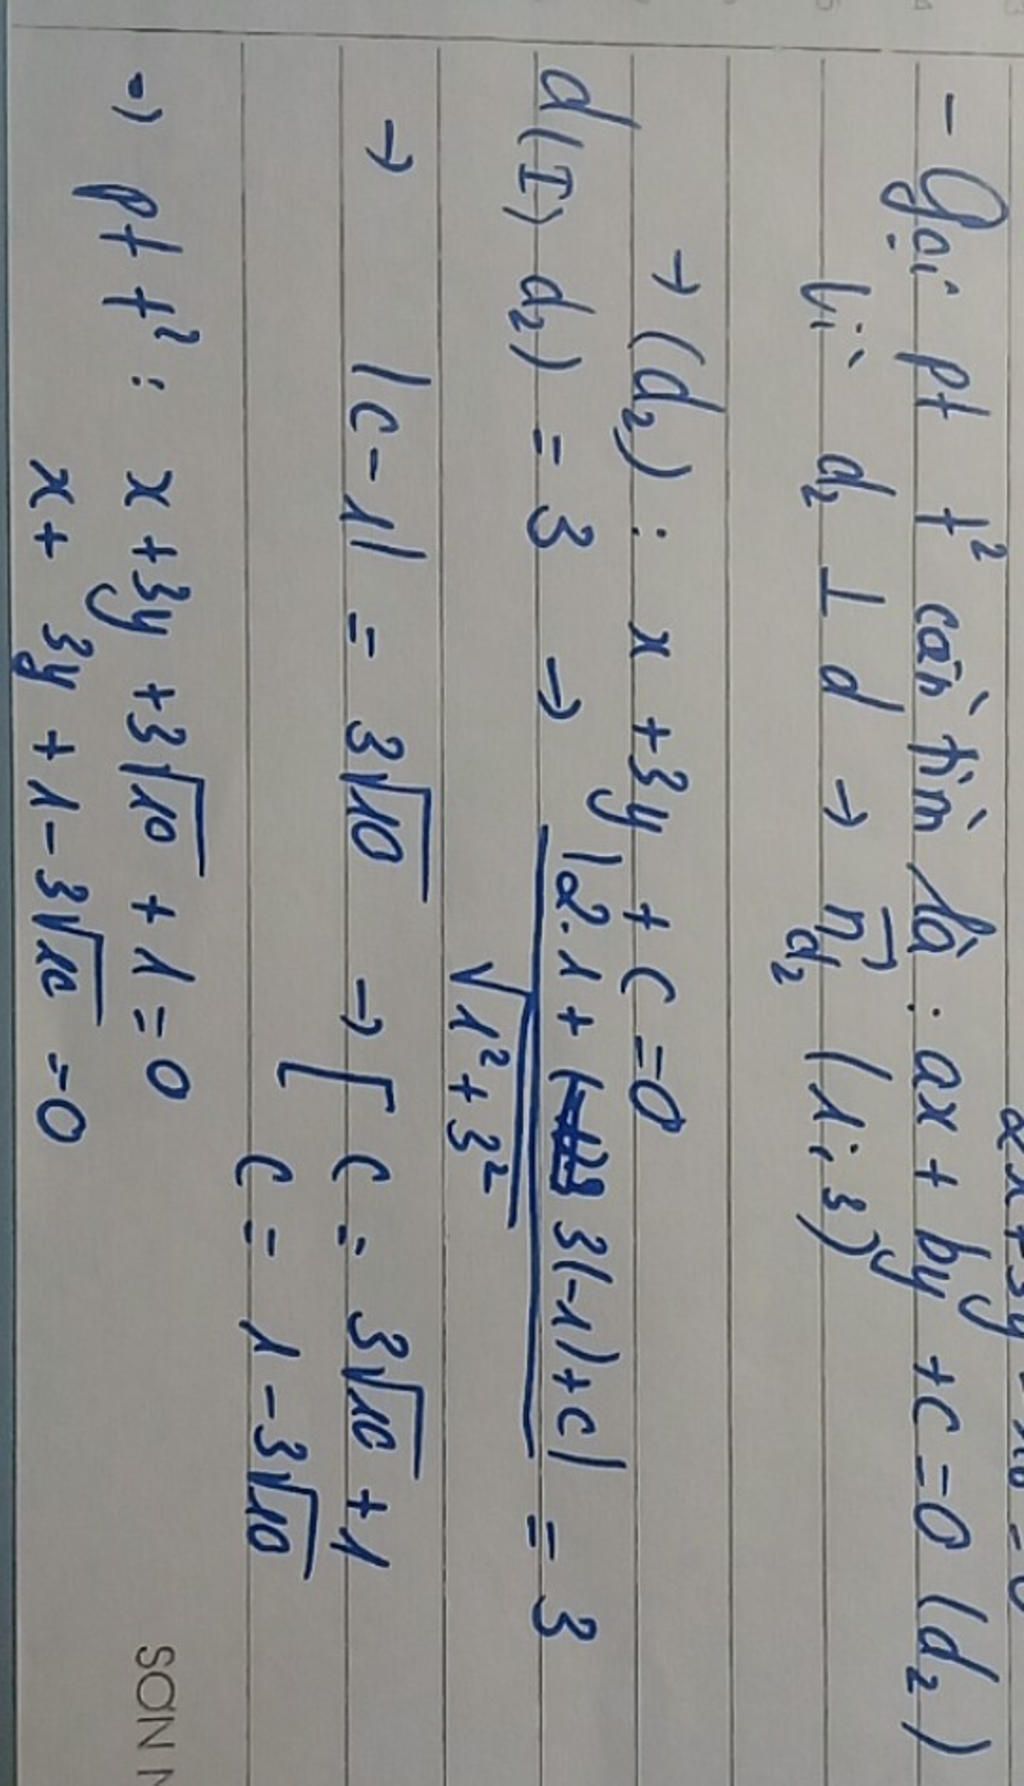 - Gọi pt t² cần tìm là : ax + by + c = 0 (d₂)
Vì d₂ ⊥ d → n⃗d₂ (1; 3)
→ (d₂) : x + 3y + c = 0
d(I, d₂) = 3 → |2.1 + 3(-1) + c| / √1² + 3² = 3
→ |c - 1| = 3√10 → [ c = 3√10 + 1
c = 1 - 3√10
⇒ pt t² : x + 3y + 3√10 + 1 = 0
x + 3y + 1 - 3√10 = 0